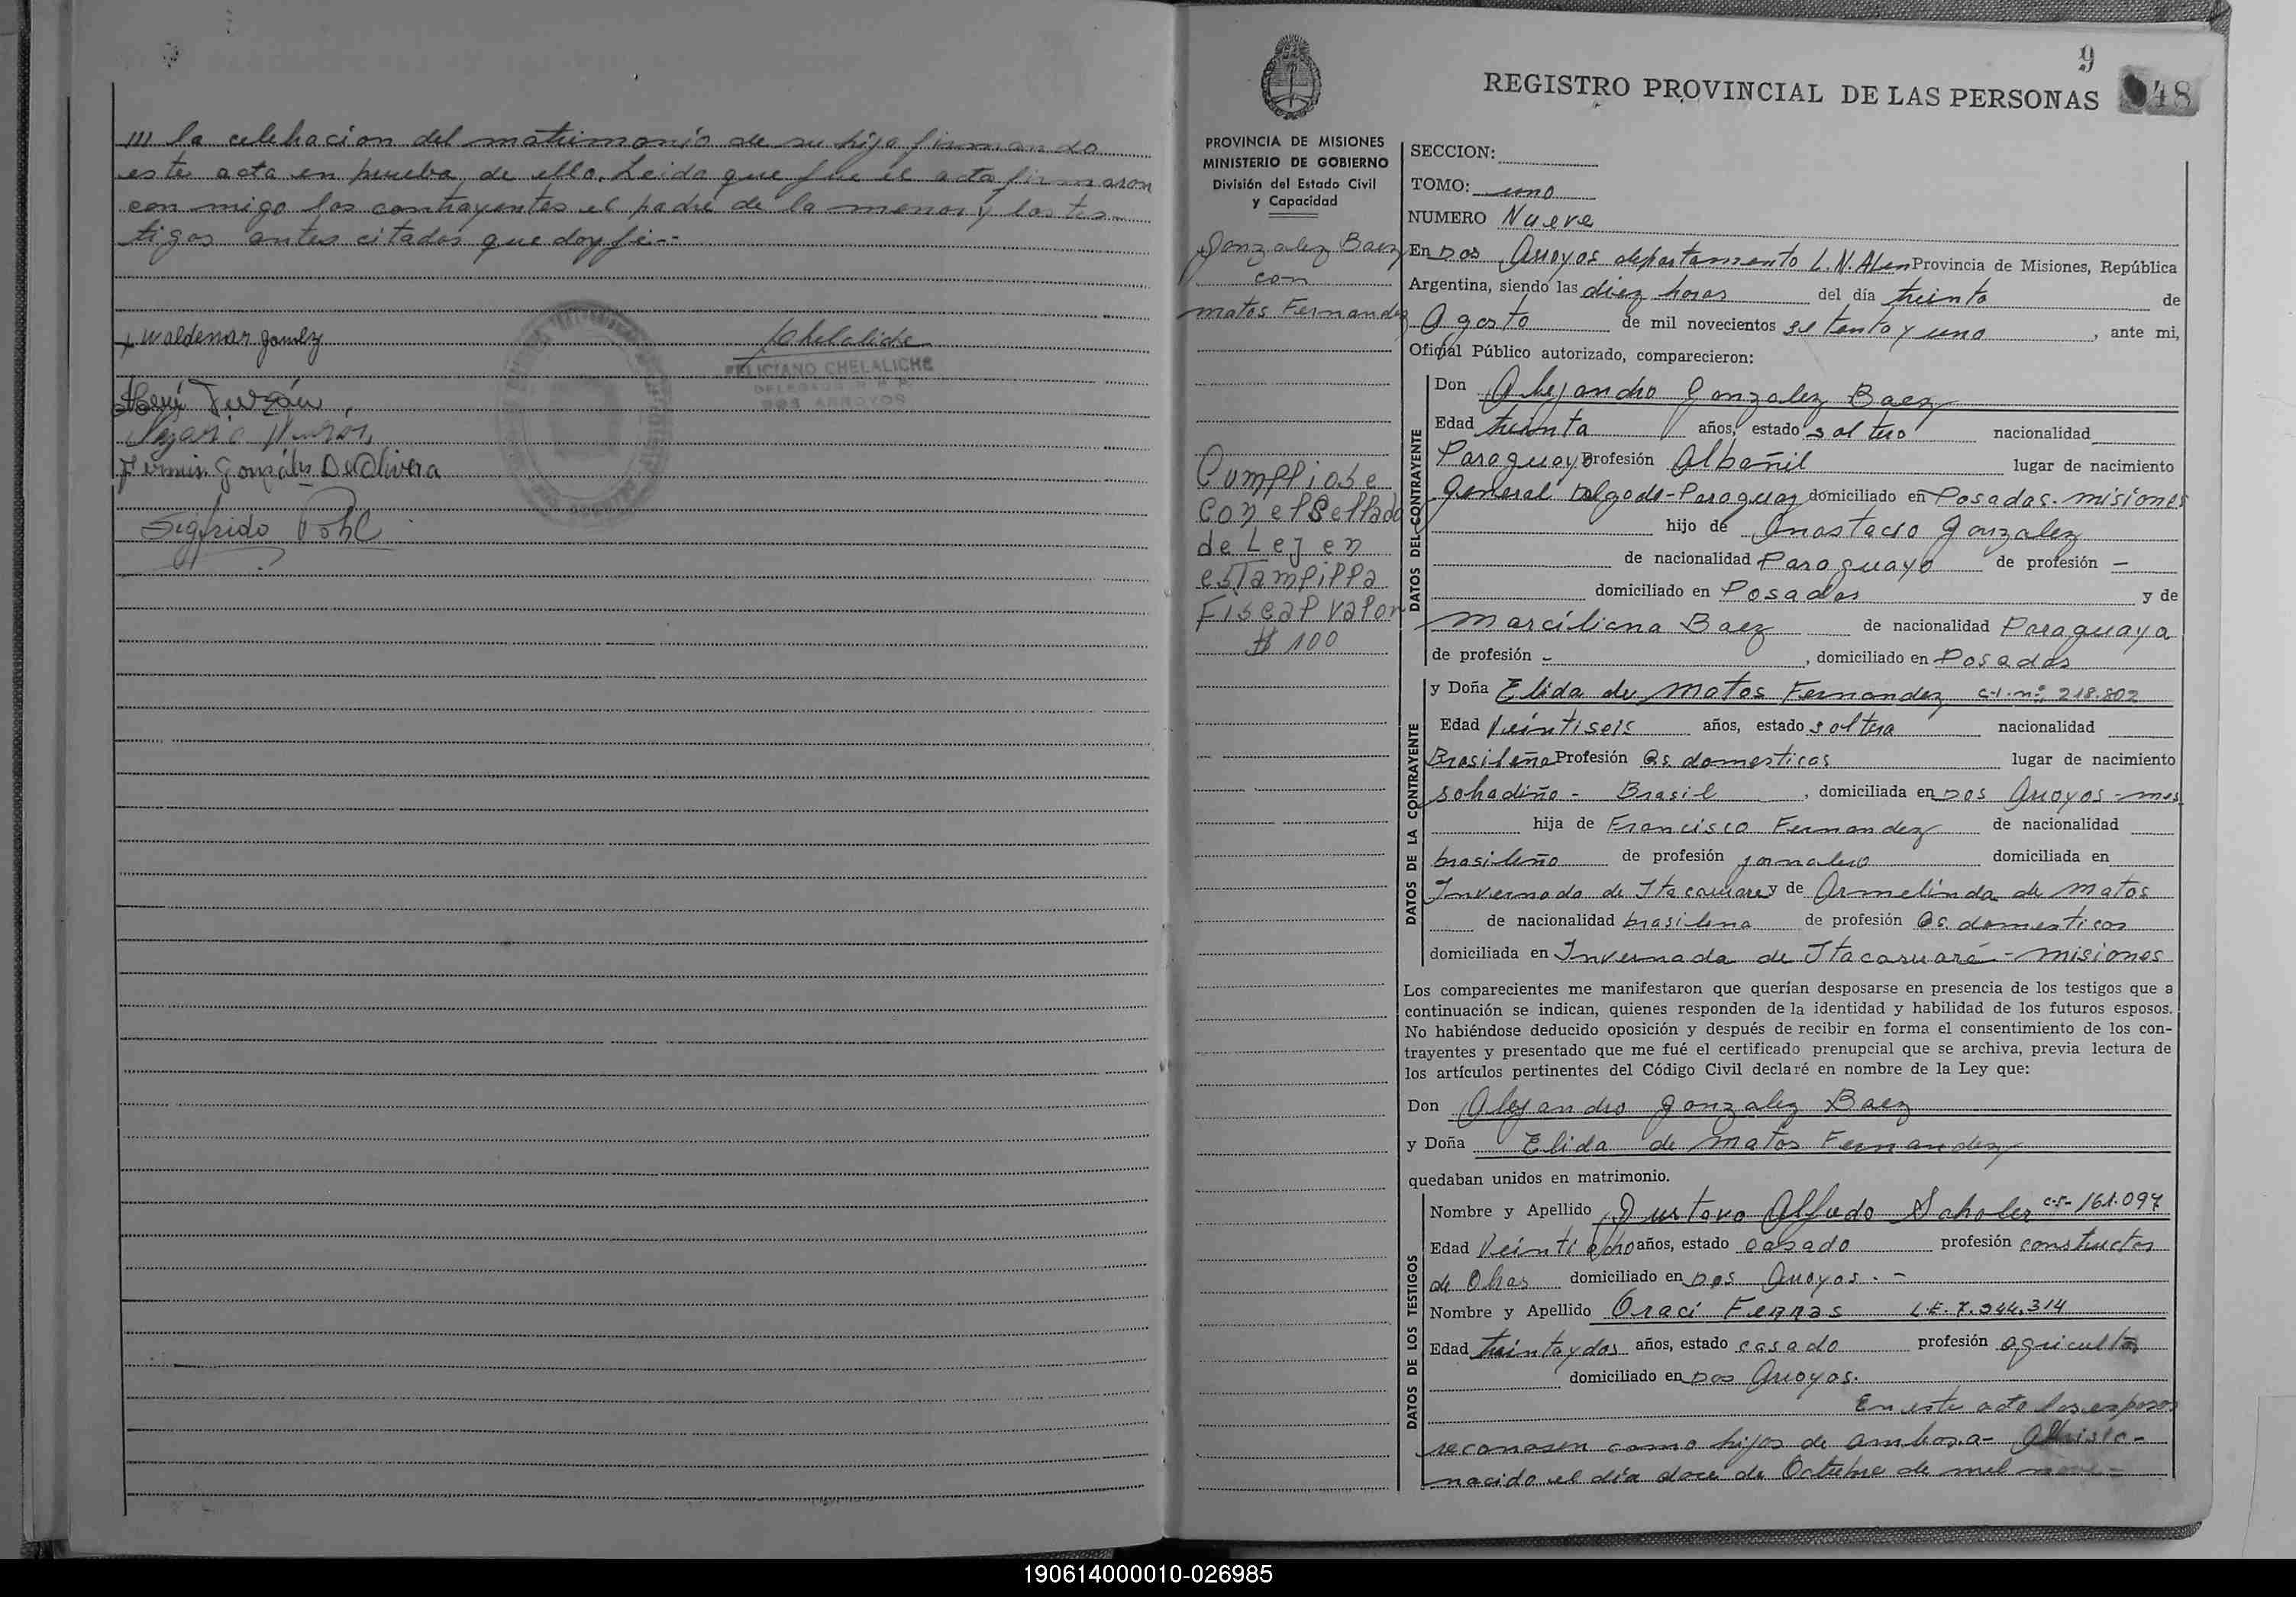 /// la celebracion del matrimonio de su hija firmando
este acta en prueba de ello. Leida que fue el acta firmaron
con migo los contrayentes el padre de la menor y los tes-
tigos antes citados que doy fe.-
x Waldemar Gomez
Chelaliche
FELICIANO CHELALICHE
DOS ARROYOS
Fermin González De Olivera
Segfrido Pohl
9
48
REGISTRO PROVINCIAL DE LAS PERSONAS
PROVINCIA DE MISIONES
MINISTERIO DE GOBIERNO
División del Estado Civil
y Capacidad
Gonzalez Baez
con
matos Fernandez
Cumpliose
Con el Sellado
de Ley en
estampilla
Fiscal valor
$ 100
SECCION:
TOMO: uno
NUMERO Nueve
En Dos Arroyos departamento L.N. Alen Provincia de Misiones, República
Argentina, siendo las diez horas del día treinta de
Agosto de mil novecientos setenta y uno, ante mi,
Oficial Público autorizado, comparecieron:
DATOS DEL CONTRAYENTE
Don Alejandro Gonzalez Baez
Edad treinta años, estado soltero nacionalidad
Paraguayo Profesión Albañil lugar de nacimiento
General Delgado-Paraguay domiciliado en Posadas. misiones
hijo de Anastacio Gonzalez
de nacionalidad Paraguayo de profesión -
domiciliado en Posadas y de
Marciliana Baez de nacionalidad Paraguaya
de profesión -, domiciliado en Posadas
DATOS DE LA CONTRAYENTE
y Doña Elida de Matos Fernandez c.i. nº 218.802
Edad Veintiseis años, estado soltera nacionalidad
Brasileña Profesión Qs. domesticos lugar de nacimiento
sohadiño - Brasil, domiciliada en Dos Arroyos - mes
hija de Francisco Fernandez de nacionalidad
brasileño de profesión jornalero domiciliada en
Invernada de Itacaruare y de Armelinda de Matos
de nacionalidad brasilena de profesión Qs. domesticos
domiciliada en Invernada de Itacaruaré - misiones
Los comparecientes me manifestaron que querían desposarse en presencia de los testigos que a
continuación se indican, quienes responden de la identidad y habilidad de los futuros esposos.
No habiéndose deducido oposición y después de recibir en forma el consentimiento de los con-
trayentes y presentado que me fué el certificado prenupcial que se archiva, previa lectura de
los artículos pertinentes del Código Civil declaré en nombre de la Ley que:
Don Alejandro Gonzalez Baez
y Doña Elida de Matos Fernandez
quedaban unidos en matrimonio.
DATOS DE LOS TESTIGOS
Nombre y Apellido Gustavo Alfredo Scholer c.i- 161.097
Edad Veinti ocho años, estado casado profesión constructor
de Obras domiciliado en Dos Arroyos. -
Nombre y Apellido Oraci Ferras L.E. 7.544.314
Edad treinta y dos años, estado casado profesión agricultor
domiciliado en Dos Arroyos.
En este acto los esposos
reconosen como hijos de ambos a-
nacido el día doce de Octubre de mil
190614000010-026985